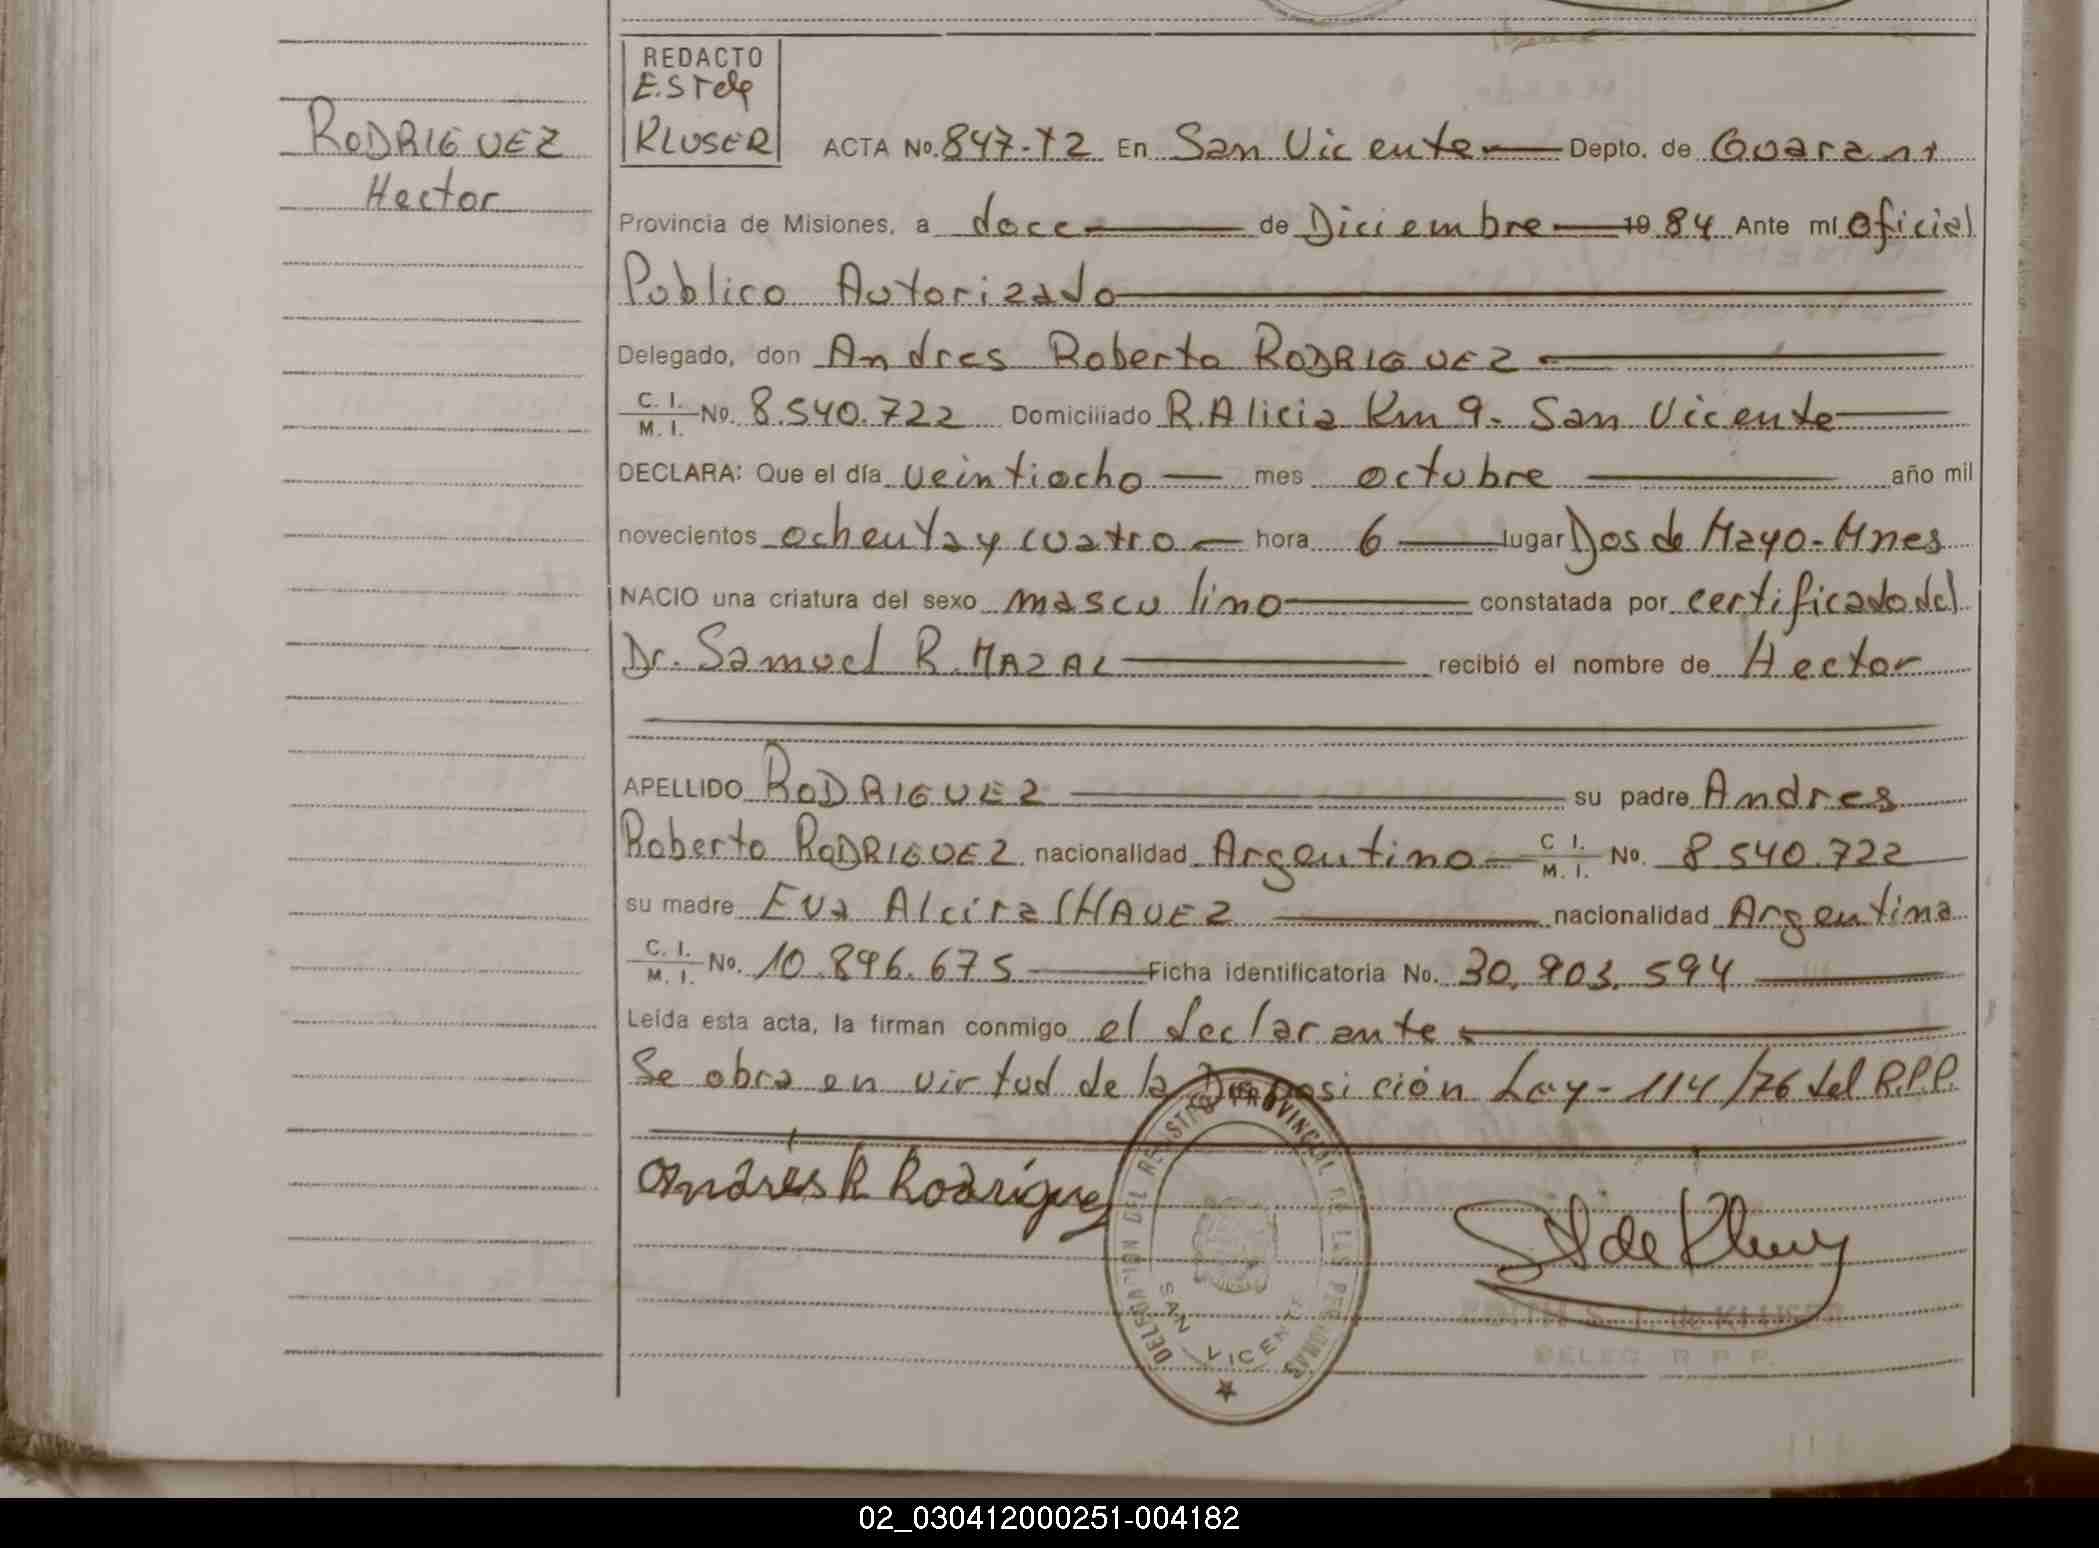 RODRIGUEZ
Hector
REDACTO
Estela
KLUSER
ACTA No. 847-T2 En San Vicente Depto. de Guarani
Provincia de Misiones, a doce de Diciembre 1984 Ante mí Oficial
Publico Autorizado
Delegado, don Andres Roberto RODRIGUEZ
C. I. M. I. No. 8.540.722 Domiciliado R. Alicia Km 9. San Vicente
DECLARA: Que el día veintiocho mes octubre año mil
novecientos ochenta y cuatro hora 6 lugar Dos de Mayo - Mnes
NACIO una criatura del sexo masculino constatada por certificado del
Dr. Samuel R. MAZAL recibió el nombre de Hector
APELLIDO RODRIGUEZ su padre Andres
Roberto RODRIGUEZ nacionalidad Argentino C. I. M. I. No. 8 540.722
su madre Eva Alcira CHAVEZ nacionalidad Argentina
C. I. M. I. No. 10.896.675 Ficha identificatoria No. 30.903.594
Leída esta acta, la firman conmigo el declarante
Se obra en virtud de la Disposición Ley - 114/76 del R.P.P.
Andrés R Rodríguez
DELEGACION DEL REGISTRO PROVINCIAL DE LAS PERSONAS
SAN VICENTE
EDITH S. T. de KLUSER
DELEG. R. P. P.
02_030412000251-004182